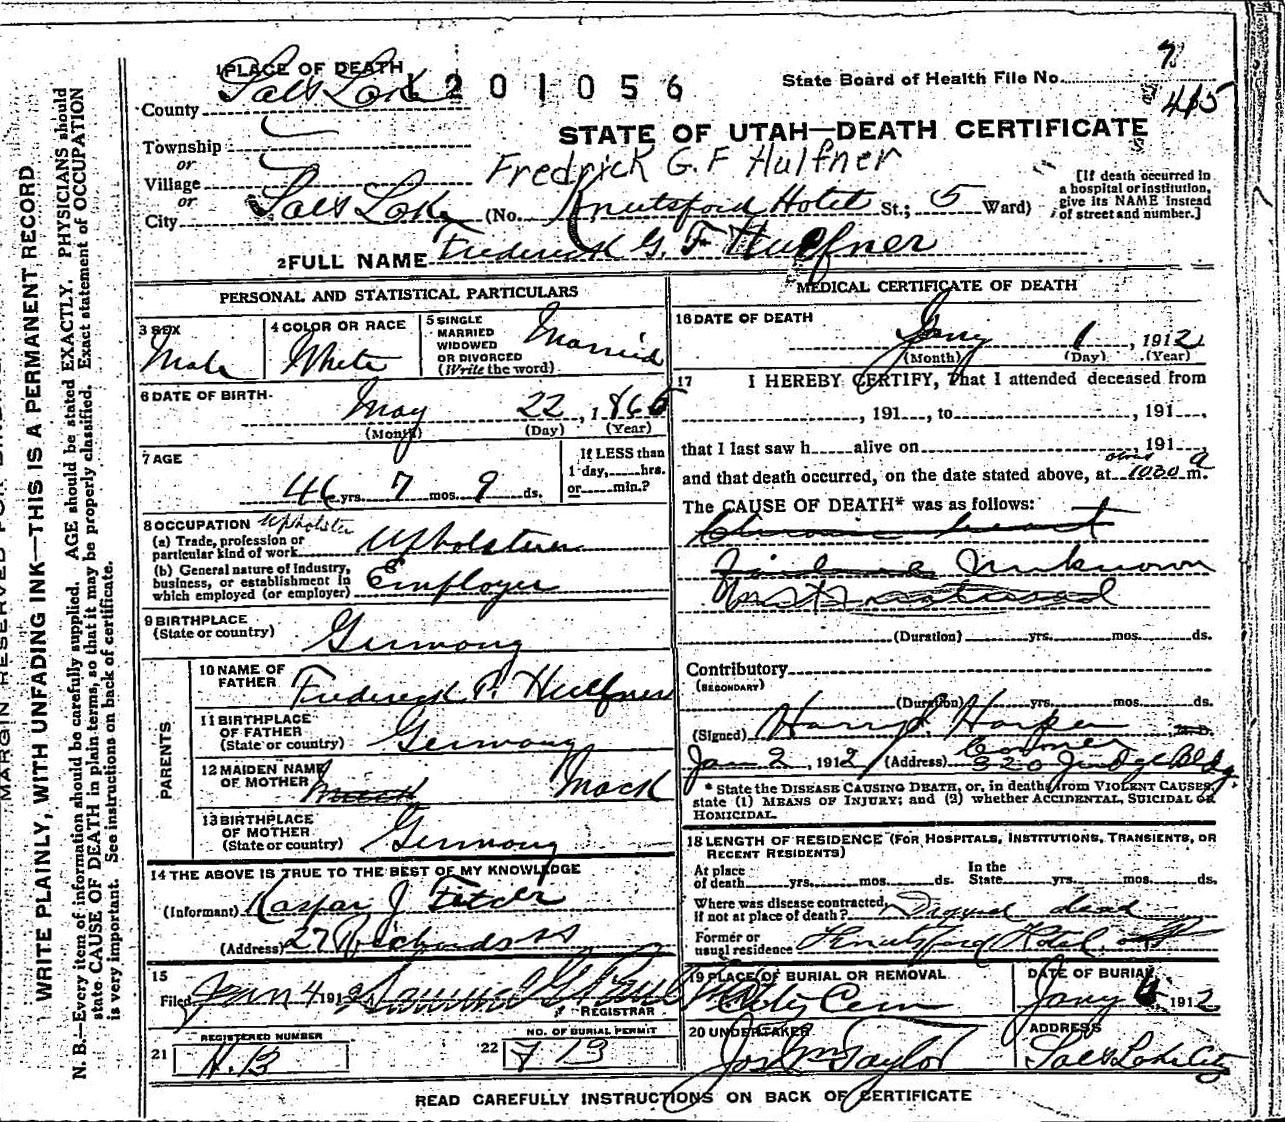 1 PLACE OF DEATH
1201056
State Board of Health File No. 7
415
County Salt Lake
STATE OF UTAH—DEATH CERTIFICATE
Township
or
Village
or
Fredrick G. F Hulfner
[If death occurred in
a hospital or institution,
give its NAME instead
of street and number.]
City Salt Lake (No. Knutsford Hotel St.; 5 Ward)
2 FULL NAME Frederick G. F Huelfner
PERSONAL AND STATISTICAL PARTICULARS
3 SEX
Male
4 COLOR OR RACE
White
5 SINGLE
MARRIED
WIDOWED
OR DIVORCED
(Write the word)
Married
6 DATE OF BIRTH
May 22, 1865
(Month) (Day) (Year)
7 AGE
46 yrs. 7 mos. 9 ds.
If LESS than
1 day, hrs.
or min.?
8 OCCUPATION Upholster
(a) Trade, profession or
particular kind of work Upholsterer
(b) General nature of industry,
business, or establishment in
which employed (or employer) Employer
9 BIRTHPLACE
(State or country) Germany
PARENTS
10 NAME OF
FATHER Frederick P. Huelfner
11 BIRTHPLACE
OF FATHER
(State or country) Germany
12 MAIDEN NAME
OF MOTHER Mack Mack
13 BIRTHPLACE
OF MOTHER
(State or country) Germany
14 THE ABOVE IS TRUE TO THE BEST OF MY KNOWLEDGE
(Informant) Kaspar J Fetzer
(Address) 27 Richards St
15
Filed Jan 4 1912 Samuel G. Paul
REGISTRAR
REGISTERED NUMBER
21 H.B
NO. OF BURIAL PERMIT
22 F 13
MEDICAL CERTIFICATE OF DEATH
16 DATE OF DEATH
Jany 1, 1912
(Month) (Day) (Year)
17 I HEREBY CERTIFY, That I attended deceased from
, 191 , to , 191 .
that I last saw h alive on 191
and that death occurred, on the date stated above, at about 1030 a m.
The CAUSE OF DEATH* was as follows:
Chronic heart
failure Unknown
Not
(Duration) yrs. mos. ds.
Contributory
(SECONDARY)
(Duration) yrs. mos. ds.
(Signed) Harry S. Harper M.D.
Coroner
Jan 2, 1912 (Address) 320 Judge Bldg.
* State the DISEASE CAUSING DEATH, or, in deaths from VIOLENT CAUSES,
state (1) MEANS OF INJURY; and (2) whether ACCIDENTAL, SUICIDAL OR
HOMICIDAL.
18 LENGTH OF RESIDENCE (FOR HOSPITALS, INSTITUTIONS, TRANSIENTS, OR
RECENT RESIDENTS)
At place
of death yrs. mos. ds.
In the
State yrs. mos. ds.
Where was disease contracted,
if not at place of death? dead
Former or
usual residence Knutsford Hotel
19 PLACE OF BURIAL OR REMOVAL
City Cem
DATE OF BURIAL
Jany 6 1912
20 UNDERTAKER
Jos Wm Taylor
ADDRESS
Salt Lake City
READ CAREFULLY INSTRUCTIONS ON BACK OF CERTIFICATE
MARGIN RESERVED FOR
WRITE PLAINLY, WITH UNFADING INK—THIS IS A PERMANENT RECORD
N. B.—Every item of information should be carefully supplied. AGE should be stated EXACTLY. PHYSICIANS should
state CAUSE OF DEATH in plain terms, so that it may be properly classified. Exact statement of OCCUPATION
is very important. See instructions on back of certificate.